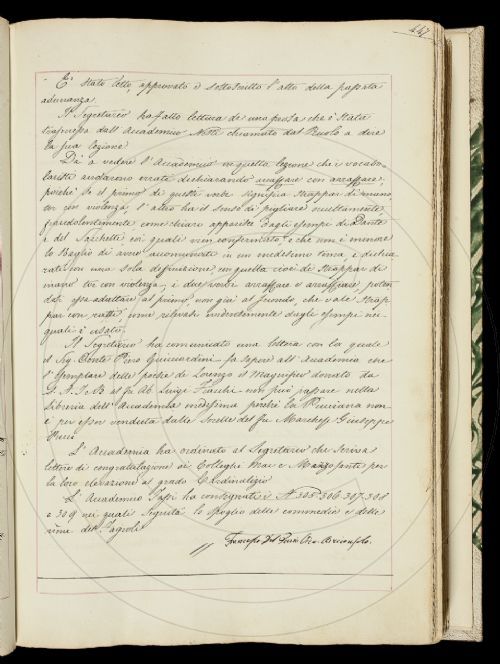 447
È stato letto, approvato e sottoscritto l'atto della passata
adunanza.
Il Segretario ha fatto lettura de una prosa che è stata
trasmessa dall'Accademico Nesti chiamato dal Ruolo a dire
la sua lezione.
Dà a vedere l'Accademico in quella lezione che i vocabo-
laristi andarono errati dichiarando arraffare con arraffiare;
poichè se il primo di questi verbi significa strappar di mano
con violenza, l'altro ha il senso di pigliare occultamente,
fraudolentemente come chiaro apparisce dagli esempi di Dante
e del Sacchetti coi quali vien confermato, e che non è minore
lo sbaglio di avere accomunate in un medesimo tema, e dichia-
rate con una sola definizione, in quella cioè di Strappar di
mano con violenza, i due verbi arraffare e arraffiare, poten-
dosi essa adattare al primo, non già al secondo, che vale Strap-
par con ratti, come rilevasi evidentemente dagli esempi nei
quali è usato.
Il Segretario ha comunicato una lettera con la quale
il Sig. Conte Pino Guicciardini fa sapere all'Accademia che
l'esemplare delle poesie di Lorenzo il Magnifico donato da
al fu Ab. Luigi Fiacchi non può passare nella
libreria dell'Accademia medesima poichè la Pucciana non
è per esser venduta dalle Sorelle del fu Marchese Giuseppe
Pucci
L'Accademia ha ordinato al Segretario che scriva
lettere di congratulazione ai Colleghi Mai e Mezzofanti per
la loro elevazione al grado Cardinalizio
L'Accademico ha consegnati i N. 305. 306. 307. 308
e 309 nei quali seguita lo spoglio delle commedie e delle
rime del Fagiuoli
Francesco Del Furia Vice-Arciconsolo.